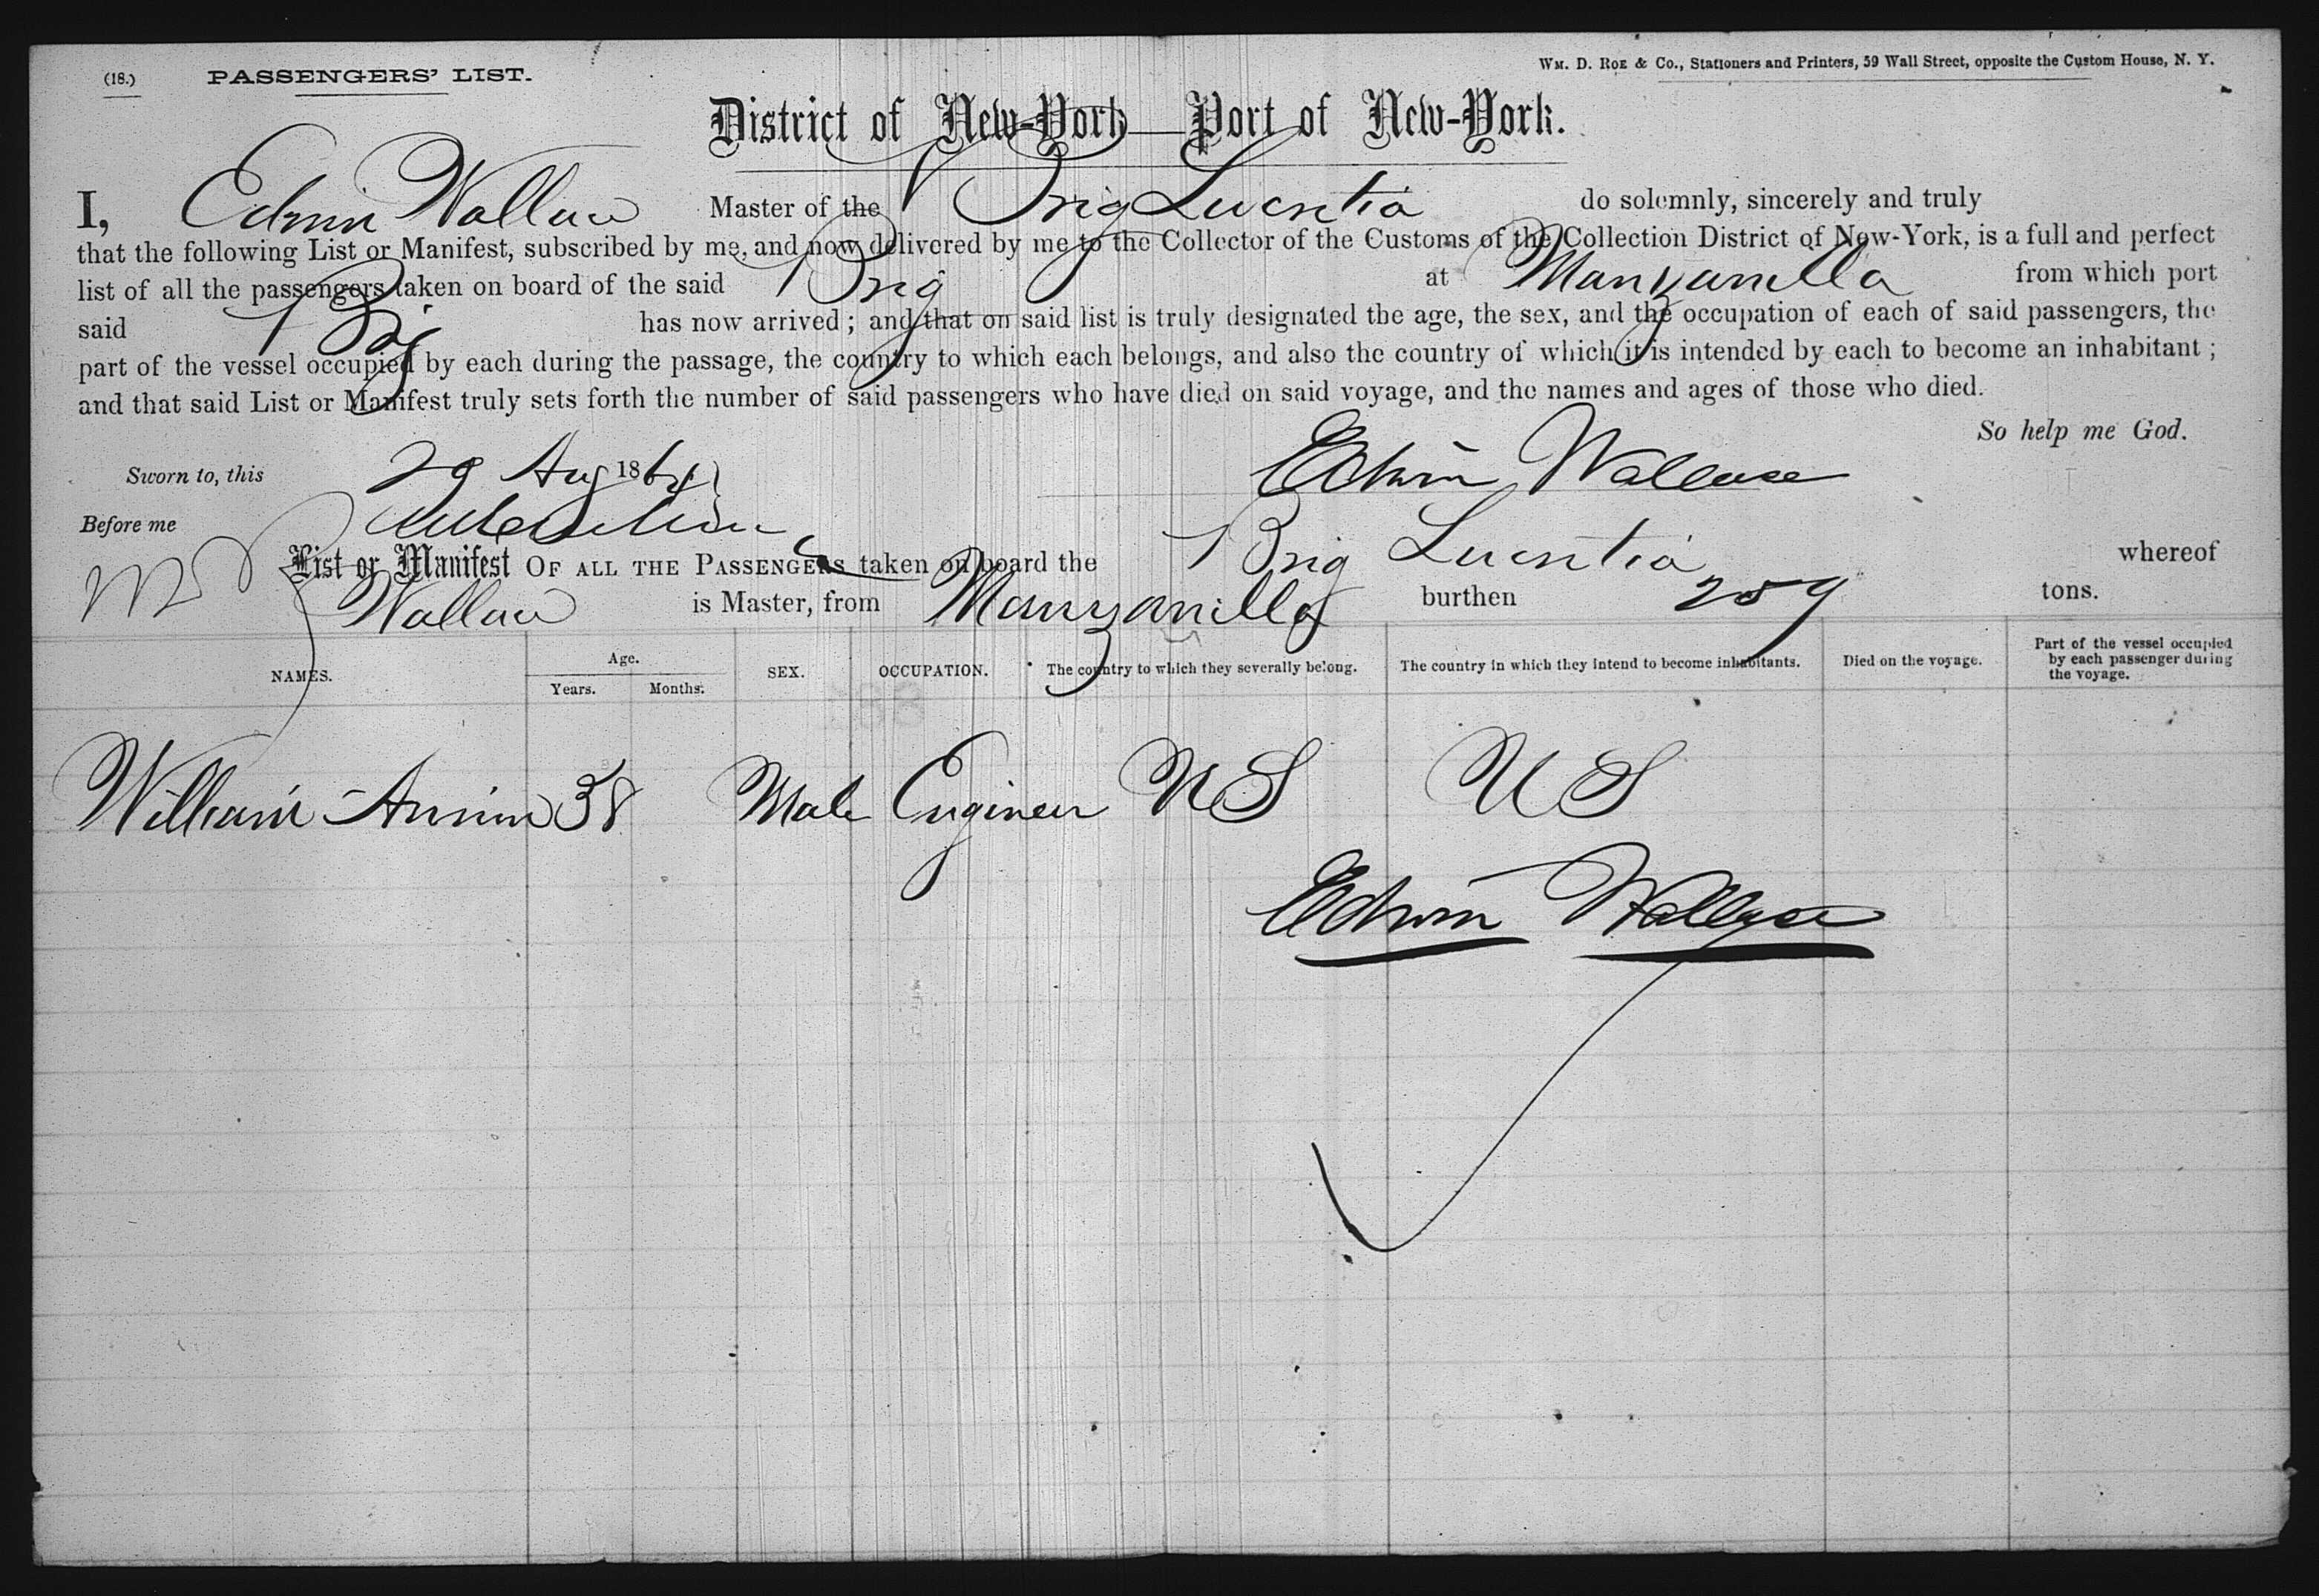 (18.) PASSENGERS' LIST.
WM. D. ROE & Co., Stationers and Printers, 59 Wall Street, opposite the Custom House, N. Y.
District of New-York—Port of New-York.
I, Edwin Wallace Master of the Brig do solemnly, sincerely and truly
that the following List or Manifest, subscribed by me, and now delivered by me to the Collector of the Customs of the Collection District of New-York, is a full and perfect
list of all the passengers taken on board of the said Brig at Manzanilla from which port
said Brig has now arrived; and that on said list is truly designated the age, the sex, and the occupation of each of said passengers, the
part of the vessel occupied by each during the passage, the country to which each belongs, and also the country of which it is intended by each to become an inhabitant;
and that said List or Manifest truly sets forth the number of said passengers who have died on said voyage, and the names and ages of those who died.
So help me God.
Sworn to, this 29 Aug 186 Edwin Wallace
Before me
List or Manifest OF ALL THE PASSENGERS taken on board the Brig whereof
Wallace is Master, from Manzanilla burthen 259 tons.
NAMES. Age. Years. Months. SEX. OCCUPATION. The country to which they severally belong. The country in which they intend to become inhabitants. Died on the voyage. Part of the vessel occupied by each passenger during the voyage.
William 38 Male Engineer US US
Edwin Wallace